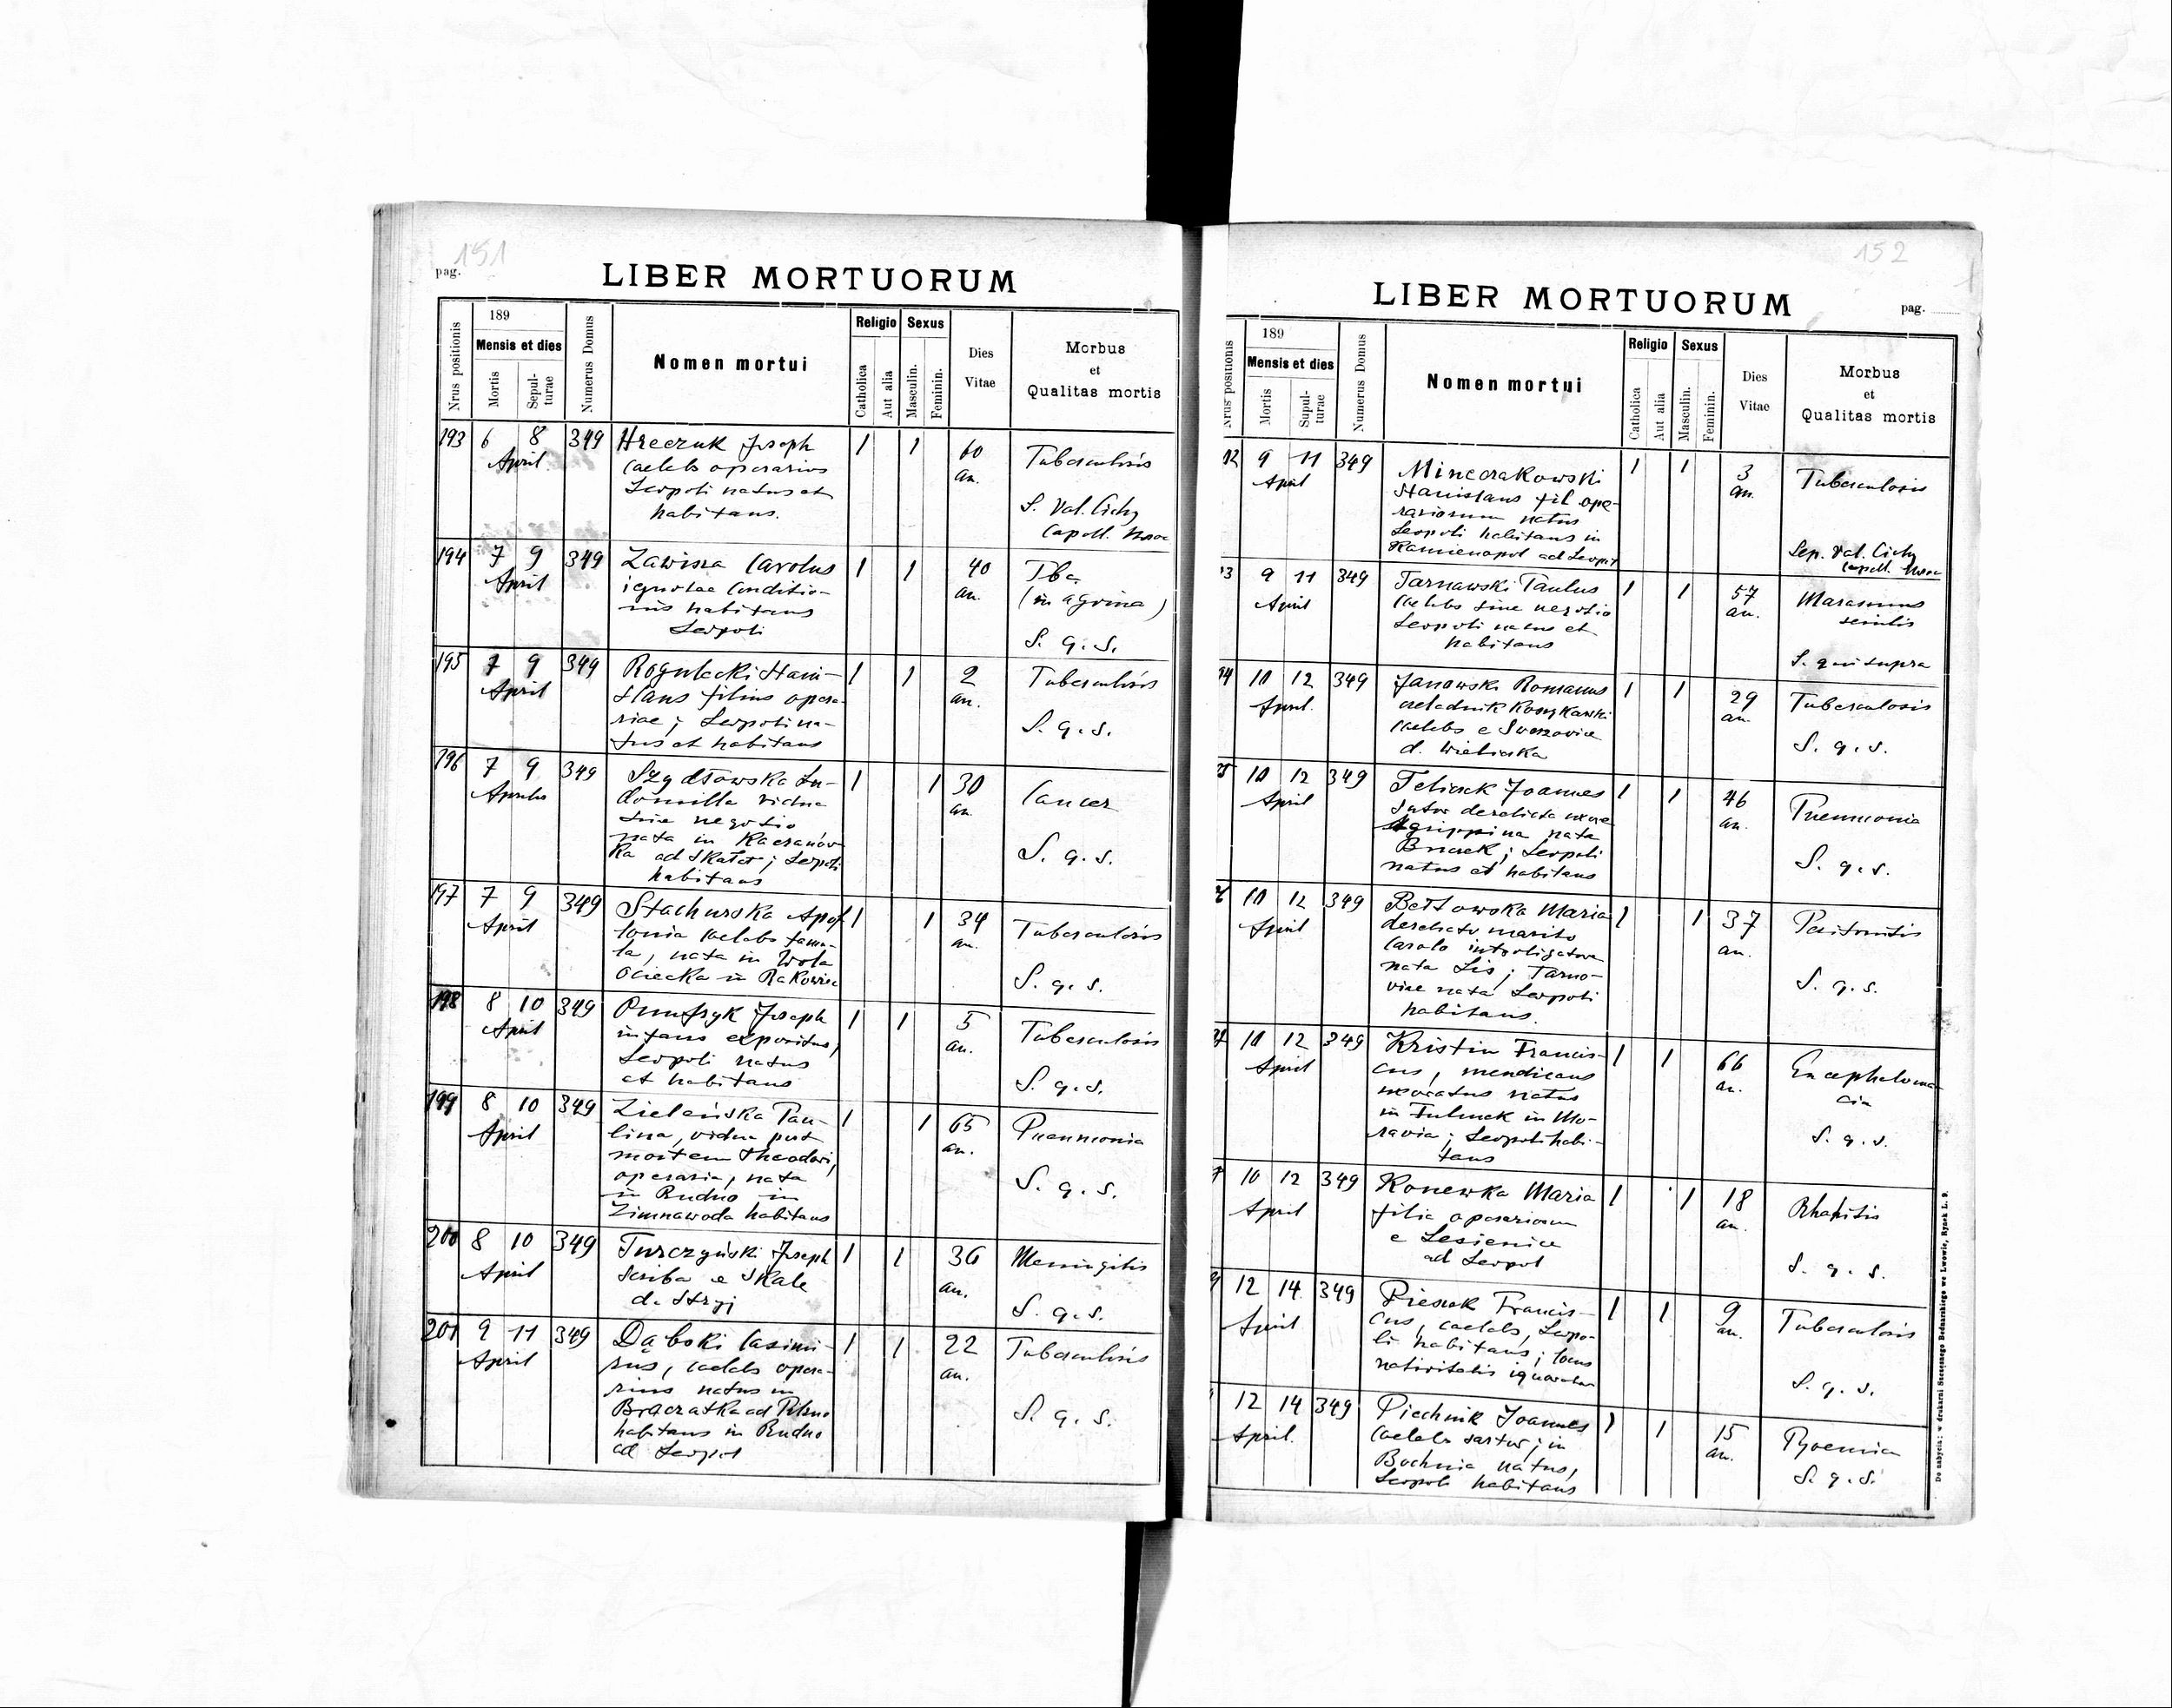 151
pag.
LIBER MORTUORUM
Nrus positionis
189
Mensis et dies
Mortis
Sepul-
turae
Numerus Domus
Nomen mortui
Religio
Catholica
Aut alia
Sexus
Masculin.
Feminin.
Dies
Vitae
Morbus
et
Qualitas mortis
193 6 8 349 Hreczuk Joseph 1 1 60 Tuberculosis
April caelebs operarius an.
Leopoli natus et S. Val. Cichy
habitans. Capell. Nosoc
194 7 9 349 Zawisza Carolus 1 1 40 Tbc
April ignotae conditio- an. (in agonia)
nis habitans
Leopoli S. q. s.
195 7 9 349 Rogulecki Stani- 1 1 2 Tuberculosis
April slaus filius opera- an.
riae; Leopoli na- S. q. s.
tus et habitans
196 7 9 349 Szydłowska Lu- 1 1 30 Cancer
Aprilis domilla vidua an.
sine negotio
nata in Kaczanów- S. q. s.
ka ad Skałat; Leopoli
habitans
197 7 9 349 Stachurska Apol- 1 1 34 Tuberculosis
April lonia caelebs famu- an.
la, nata in Wola
Ociecka in S. q. s.
198 8 10 349 Joseph 1 1 5 Tuberculosis
April infans expositus, an.
Leopoli natus
et habitans S. q. s.
199 8 10 349 Zielańska Pau- 1 1 65 Pneumonia
April lina, vidua post an.
mortem Theodori,
operaria, nata S. q. s.
in Rudno in
Zimnawoda habitans
200 8 10 349 Turczyński Joseph 1 1 36 Meningitis
April scriba e Skole an.
d. Stryj S. q. s.
201 9 11 349 Dąbski Casimi- 1 1 22 Tuberculosis
April rus, caelebs opera- an.
rius natus in
ad Pilzno S. q. s.
habitans in Rudno
ad Leopol
152
LIBER MORTUORUM
pag.
Nrus positionis
189
Mensis et dies
Mortis
Supul-
turae
Numerus Domus
Nomen mortui
Religio
Catholica
Aut alia
Sexus
Masculin.
Feminin.
Dies
Vitae
Morbus
et
Qualitas mortis
12 9 11 349 Minczakowski 1 1 3 Tuberculosis
April Stanislaus fil ope- an.
rariorum natus
Leopoli habitans in Sep. Val. Cichy
Kamienopol ad Leopol Capell. Nosoc
13 9 11 349 Tarnawski Paulus 1 1 57 Marasmus
April caelebs sine negotio an. senilis
Leopoli natus et
habitans S. qui supra
14 10 12 349 Janowski Romanus 1 1 29 Tuberculosis
April. czeladnik koszykarski an.
caelebs e Swoszowice S. q. s.
d. Wieliczka
10 12 349 Joannes 1 1 46 Pneumonia
April sutor derelicta uxore an.
Agrippina nata
; Leopoli S. q. s.
natus et habitans
10 12 349 Bełtowska Maria 1 1 37 Peritonitis
April derelicto marito an.
Carolo introligatore
nata Lis; Tarno- S. q. s.
viae nata Leopoli
habitans.
10 12 349 Kristin Francis- 1 1 66 Encephaloma-
April cus, mendicans an. cia
uxoratus natus
in Fulnek in Mo- S. q. s.
ravia; Leopoli habi-
tans
10 12 349 Konewka Maria 1 1 18 Rhahitis
April filia operariorum an.
e Lesienice
ad Leopol S. q. s.
12 14 349 Francis- 1 1 9 Tuberculosis
April cus, caelebs, Leopo- an.
li habitans; locus
nativitatis ignoratur S. q. s.
12 14 349 Piechnik Joannes 1 1 15 Pyoemia
April. caelebs sartor; in an.
Bochnia natus, S. q. s.
Leopoli habitans
Do nabycia: w drukarni Szczęsnego Bednarskiego we Lwowie, Rynek L. 9.